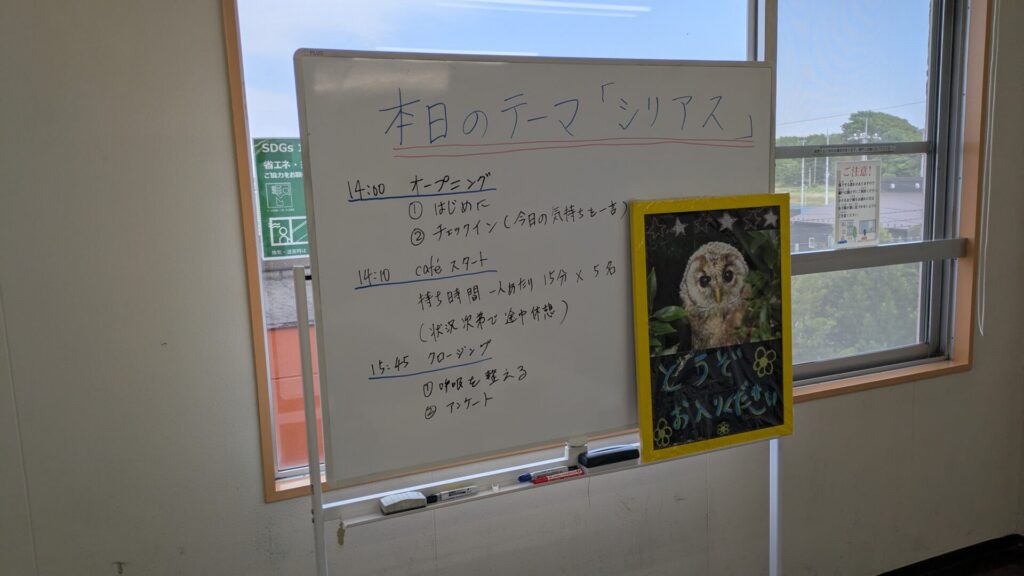 本日のテーマ「シリアス」
14:00 オープニング
① はじめに
② チェックイン(今日の気持ちを一言)
14:10 café スタート
持ち時間 一人あたり 15分 × 5名
(状況次第で途中休憩)
15:45 クロージング
① 呼吸を整える
② アンケート
どうぞ
お入りください
SDGs
省エネ・
ご協力をお願
ご注意!